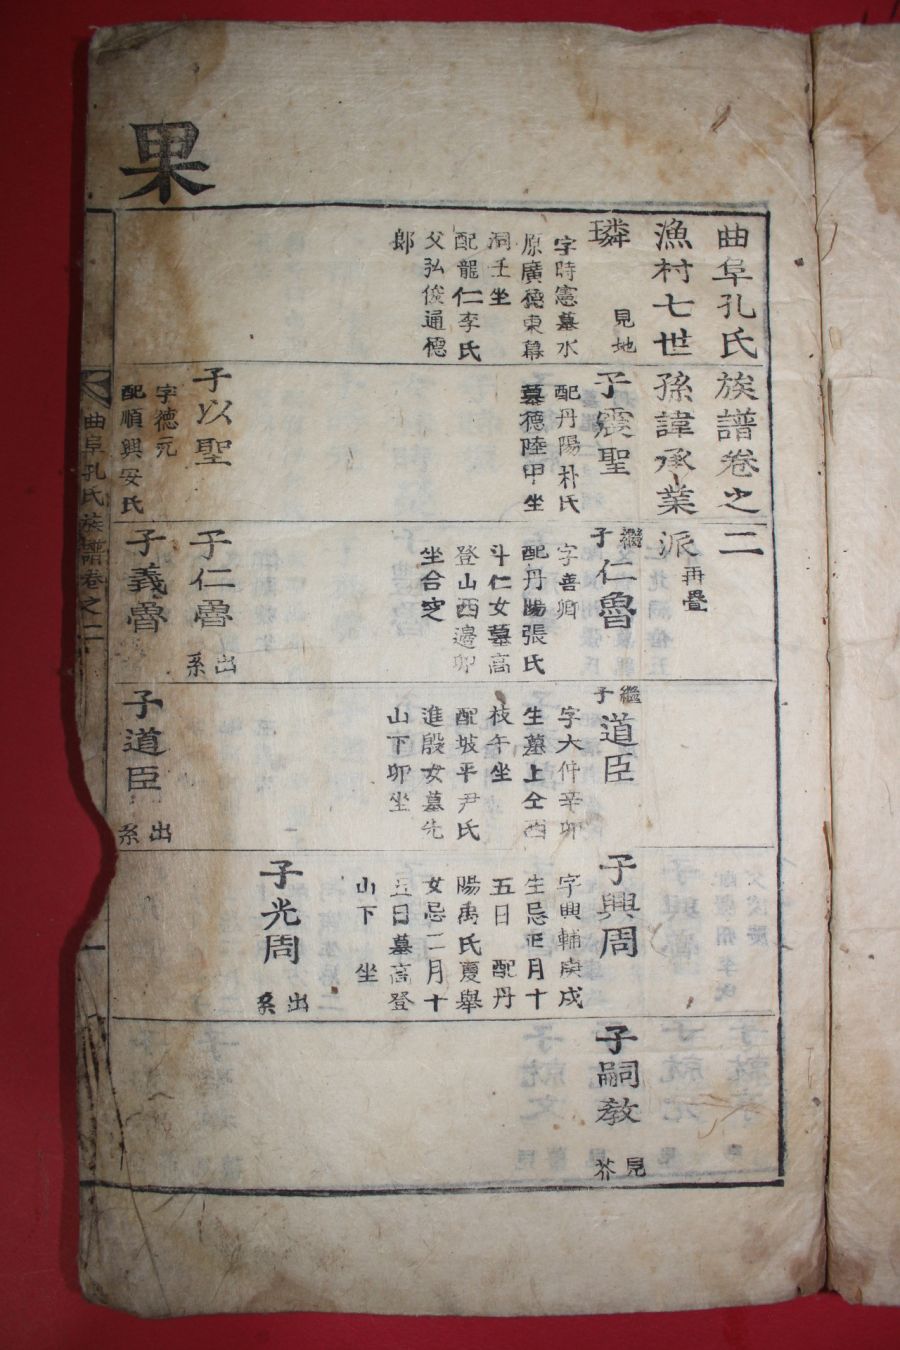 果
曲阜孔氏族譜卷之二
漁村七世孫諱承業派 再疊
璘 見地
字時憲墓水
原廣德東幕
洞壬坐
配龍仁李氏
父弘俊通德
郎
子震聖
配丹陽朴氏
墓德陸甲坐
子以聖
字德元
配順興安氏
繼子仁魯
字善卿
配丹陽張氏
斗仁女墓高
登山西邊卯
坐合窆
子仁魯 出系
子義魯
繼子道臣
字大仲辛卯
生墓上仝酉
枝午坐
配坡平尹氏
進殷女墓先
山下卯坐
子道臣 出系
子興周
字興輔庚戌
生忌正月十
五日 配丹
陽禹氏慶舉
女忌二月十
五日墓高登
山下 坐
子光周 出系
子嗣教 見芥
曲阜孔氏族譜卷之二
一